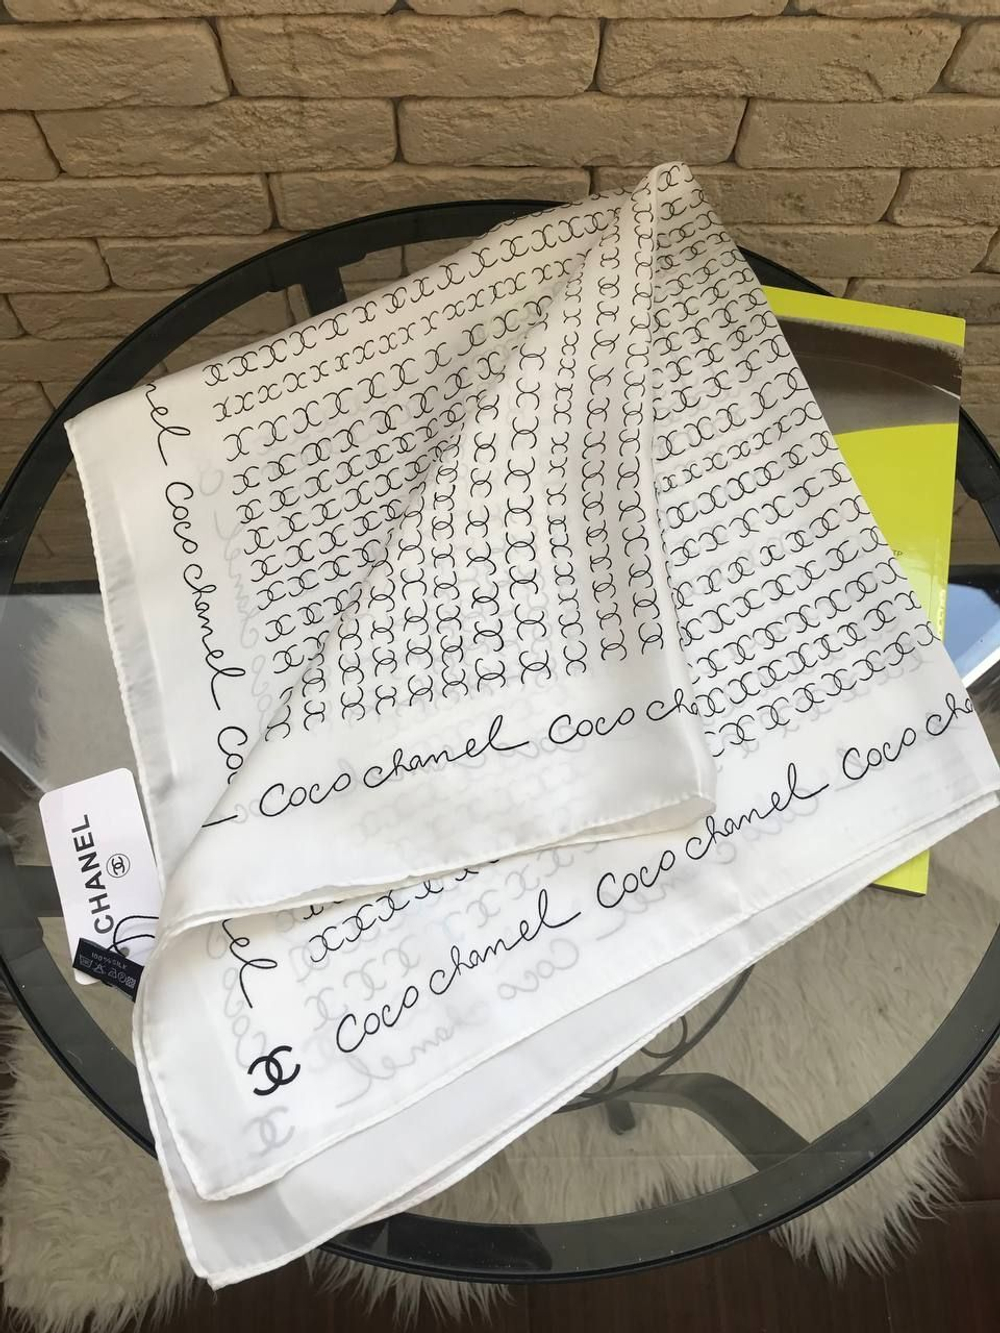 nel
Coco chanel
Co
Coco chanel Coco ch
nel
Coco chanel Coco chanel Coco cha
CHANEL
100% SILK